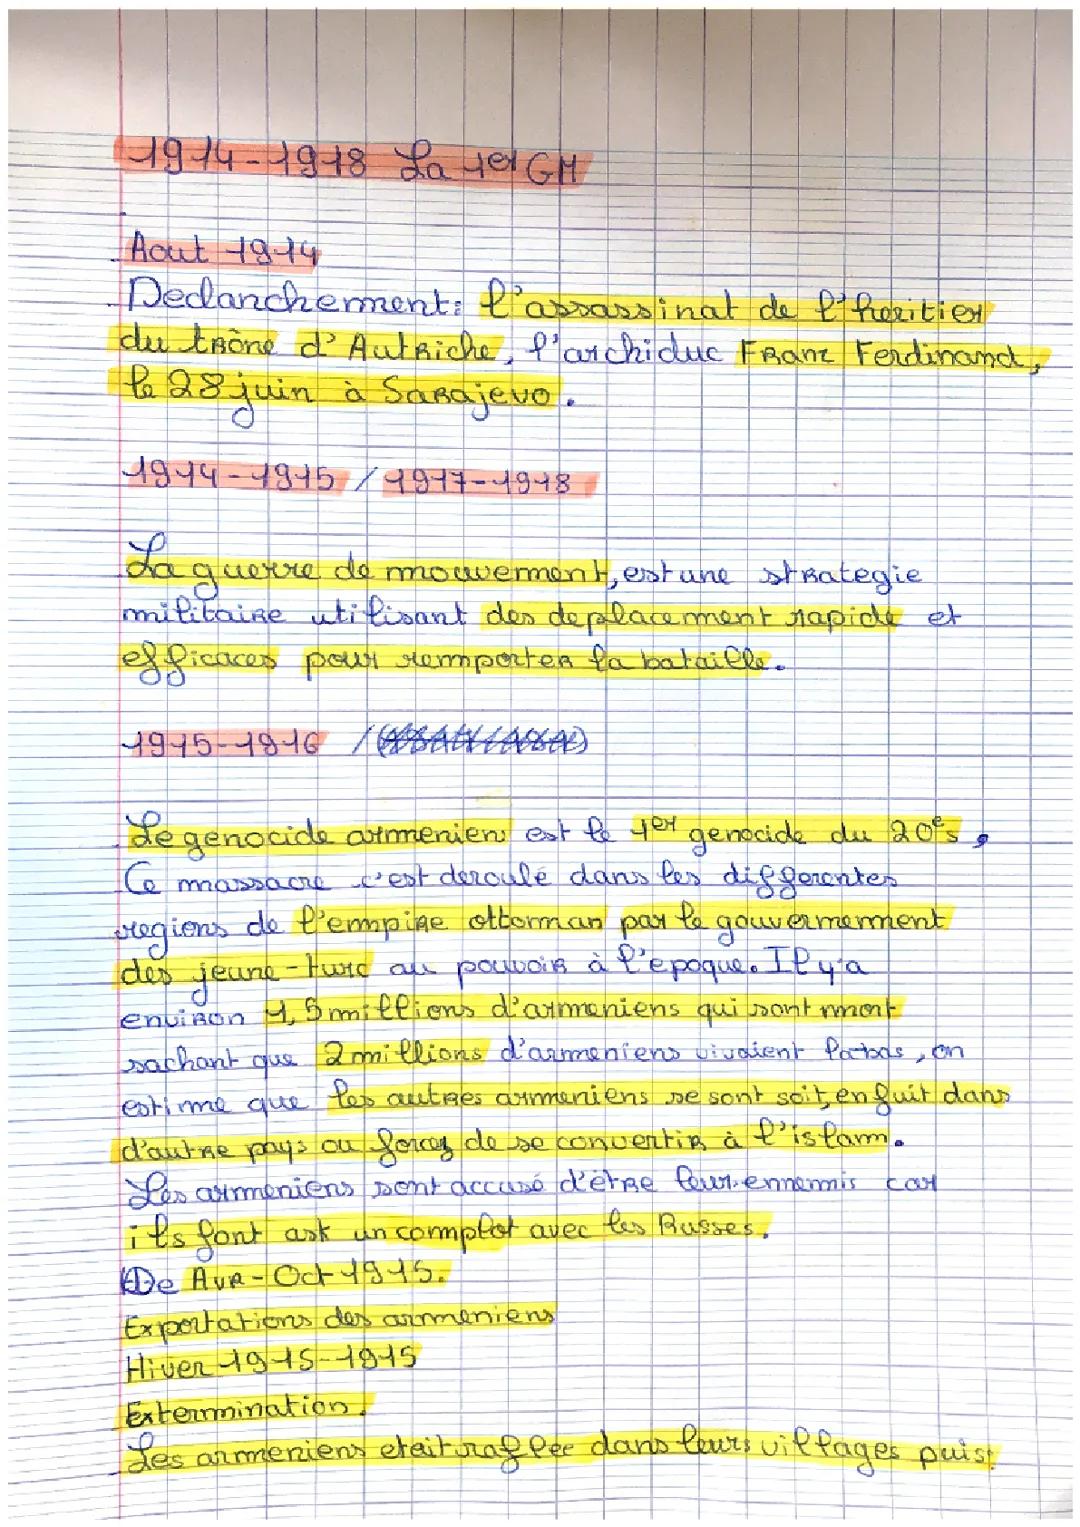 1914-1918 La 1er GM
Aout 1914
Declanchement: l'assassinat de l'heritier
du trône d'Autriche, l'archiduc Franz Ferdinand,
le 28 juin à Sarajevo.
1914-1915 / 1917-1918
La guerre de mouvement, est une strategie
militaire utilisant des deplacement rapide et
efficaces pour remporter la bataille.
1915-1916 /
Le genocide armenien est le 1er genocide du 20es,
Ce massacre c'est deroulé dans les differentes
regions de l'empire ottoman par le gouvernement
des jeune-turc au pouvoir à l'epoque. Il y'a
environ 1,5 millions d'armeniens qui sont mort
sachant que 2 millions d'armeniens vivaient labas, on
estime que les autres armeniens se sont soit, enfuit dans
d'autre pays ou forcez de se convertir à l'islam.
Les armeniens sont accusé d'être leur ennemis car
ils font un complot avec les Russes.
De Avr-Oct 1915.
Exportations des armeniens
Hiver 1915-1915
Extermination.
Les armeniens eteit raflée dans leurs villages puis